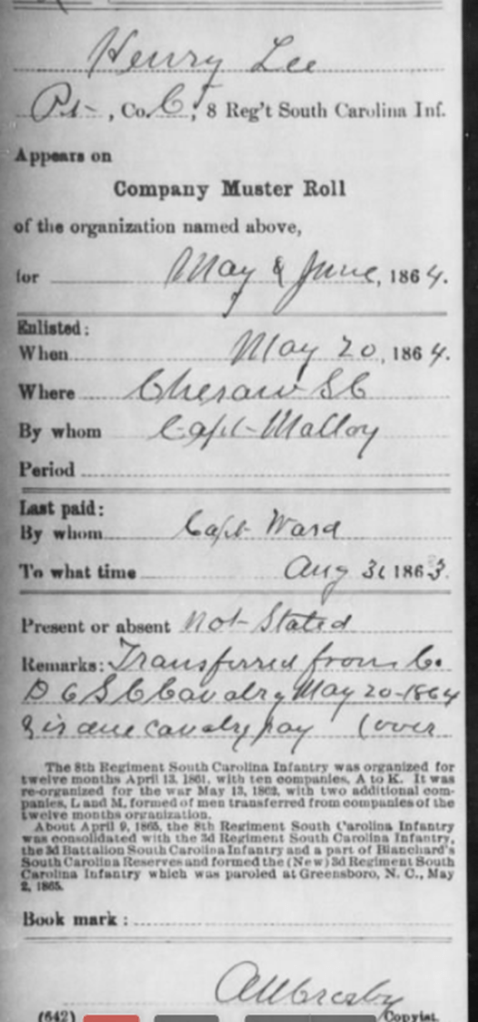 Henry Lee
Pvt, Co. C, 8 Reg't South Carolina Inf.
Appears on
Company Muster Roll
of the organization named above,
for May & June, 1864.
Enlisted:
When May 20, 1864.
Where Cheraw SC
By whom Capt Malloy
Period
Last paid:
By whom Capt Ward
To what time Aug 31 1863.
Present or absent Not Stated
Remarks: Transferred from Co.
D 6 S C Cavalry May 20-1864
& is due cavalry pay (over
The 8th Regiment South Carolina Infantry was organized for
twelve months April 13, 1861, with ten companies, A to K. It was
re-organized for the war May 13, 1862, with two additional com-
panies, L and M, formed of men transferred from companies of the
twelve months organization.
About April 9, 1865, the 8th Regiment South Carolina Infantry
was consolidated with the 3d Regiment South Carolina Infantry,
the 3d Battalion South Carolina Infantry and a part of Blanchard's
South Carolina Reserves and formed the (New) 3d Regiment South
Carolina Infantry which was paroled at Greensboro, N. C., May
2, 1865.
Book mark:
Crosby
(642) Copyist.